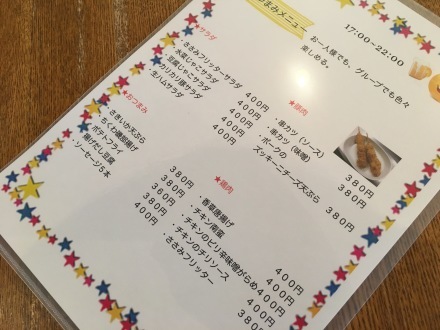 おつまみメニュー
17:00~22:00
お一人様でも、グループでも色々
楽しめる。
★サラダ
・ささみフリッターサラダ 400円
・水菜じゃこサラダ 400円
・豆腐じゃこサラダ 400円
・カリカリ雑サラダ 400円
・生ハムサラダ 400円
★おつまみ
・さきいか天ぷら 380円
・ちくわ磯辺揚げ 380円
・ポテトフライ 360円
・揚げだし豆腐 380円
・ソーセージ5本 400円
★豚肉
・串カツ(ソース) 380円
・串カツ(味噌) 380円
・ポークの
ズッキーニチーズ天ぷら 380円
★鶏肉
・香草唐揚げ 400円
・チキン南蛮 400円
・チキンのピリ辛味噌がらめ 400円
・チキンのチリソース 400円
・ささみフリッター 380円